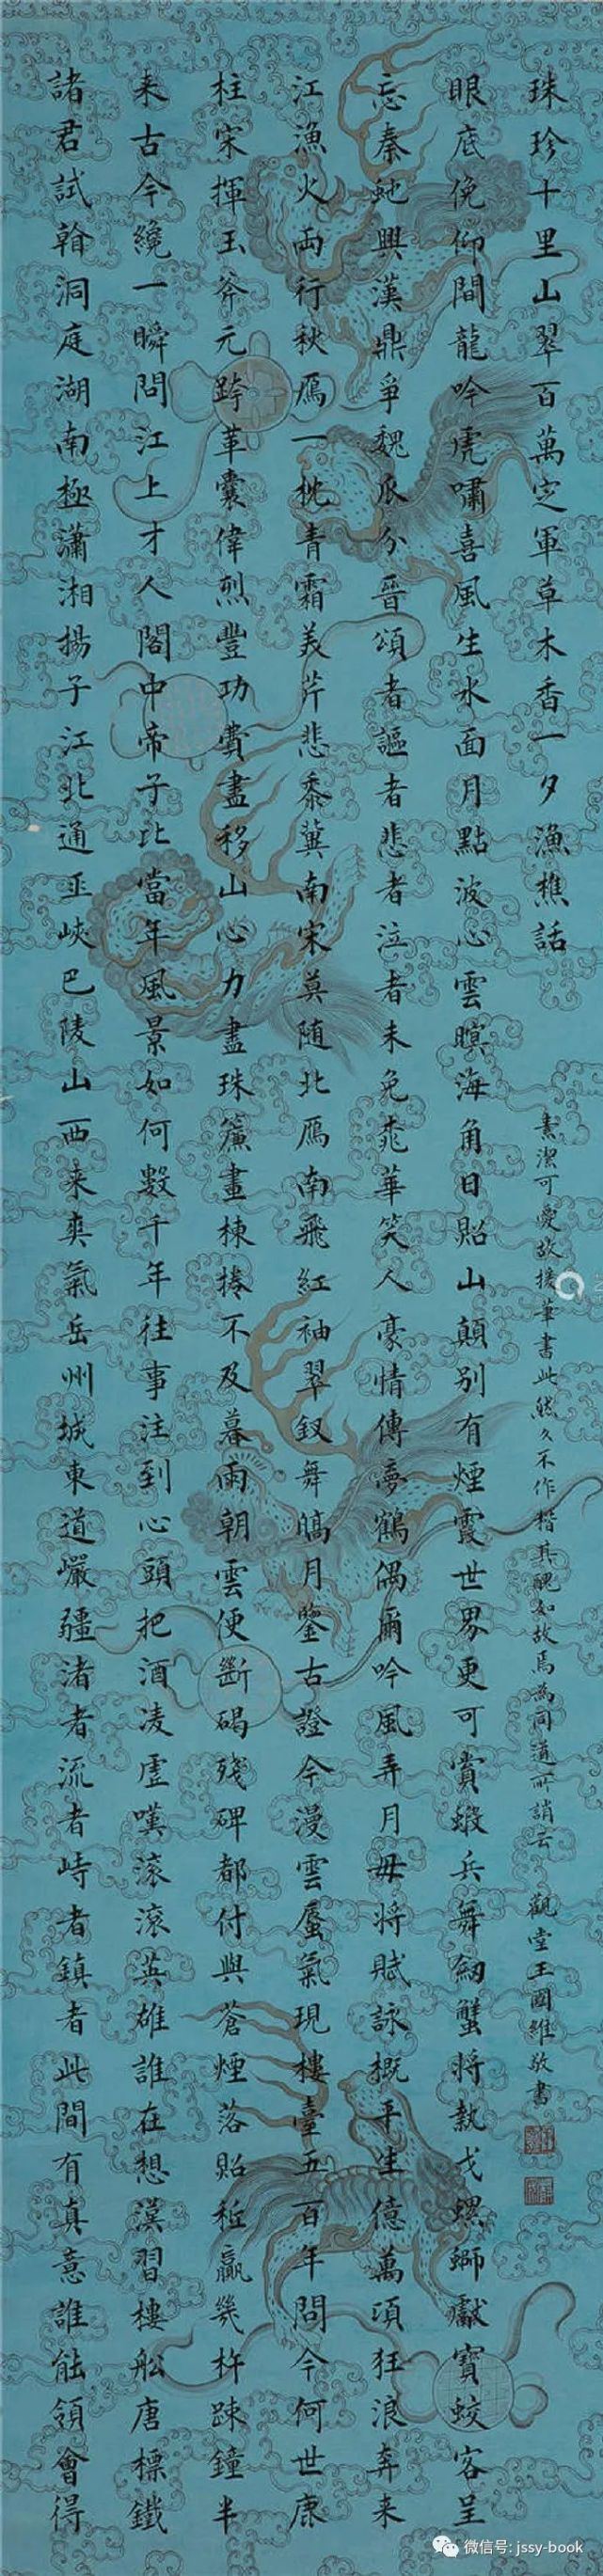 諸君試翰洞庭湖南極瀟湘揚子江北通巫峽巴陵山西来爽氣岳州城東道巗疆渚者流者峙者鎮者此間有真意誰能領會得
来古今纔一瞬問江上才人閣中帝子比當年風景如何數千年往事注到心頭把酒凌虛嘆滚滚英雄誰在想漢習樓船唐標鐵
柱宋揮玉斧元跨革囊偉烈豐功費盡移山心力盡珠簾畫棟捲不及暮雨朝雲便斷碣殘碑都付與蒼煙落照秪贏幾杵踈鐘半
江漁火兩行秋雁一枕青霜義芹悲黍冀南宋莫随北雁南飛紅袖翠釵舞鎬月鑒古證今漫雲蜃氣現樓臺五百年問今何世鹿
忘秦虵興漢鼎爭魏瓜分晉頌者謳者悲者泣者未免桃華笑人豪情傳夢鶴偶爾吟風弄月毋將賦詠概平生億萬頃狂浪奔来
眼底俛仰間龍吟虎嘯喜風生水面月點波心雲暝海角日照山顛別有煙霞世界更可賞蝦兵舞劒蟹將執戈螺螄獻寶蛟客呈
珠珍十里山翠百萬定軍草木香一夕漁樵話
素潔可愛故援筆書此然久不作楷其醜如故焉為同道所誚云 觀堂王國維敬書
微信号: jssy-book